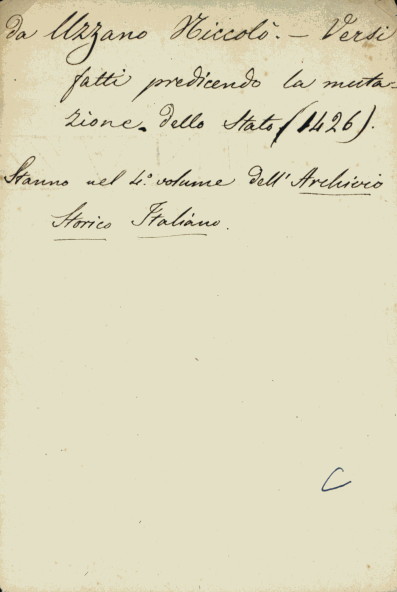 da Uzzano Niccolò. — Versi
fatti predicendo la muta-
zione dello Stato (1426).
Stanno nel 4.° volume dell'Archivio
Storico Italiano.
C